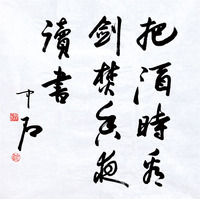 把酒時看
劍焚香夜
讀書
中石